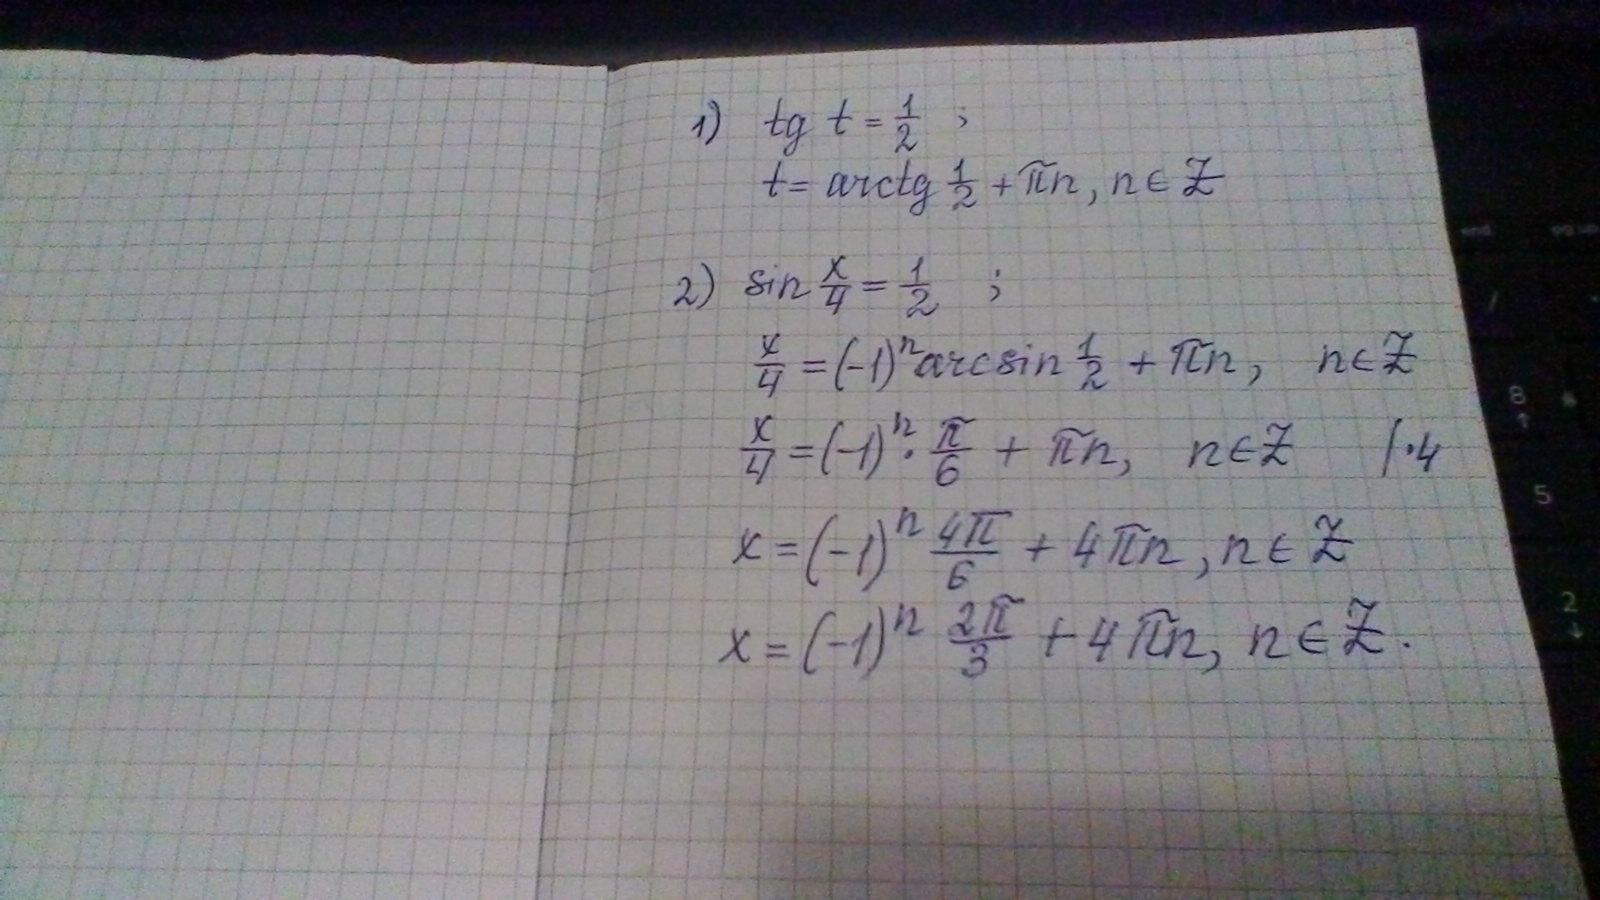 1) tg t = 1/2 ;
t = arctg 1/2 + πn, n ∈ Z
2) sin x/4 = 1/2 ;
x/4 = (-1)^n arcsin 1/2 + πn, n ∈ Z
x/4 = (-1)^n · π/6 + πn, n ∈ Z |·4
x = (-1)^n 4π/6 + 4πn, n ∈ Z
x = (-1)^n 2π/3 + 4πn, n ∈ Z.
end
8
5
2